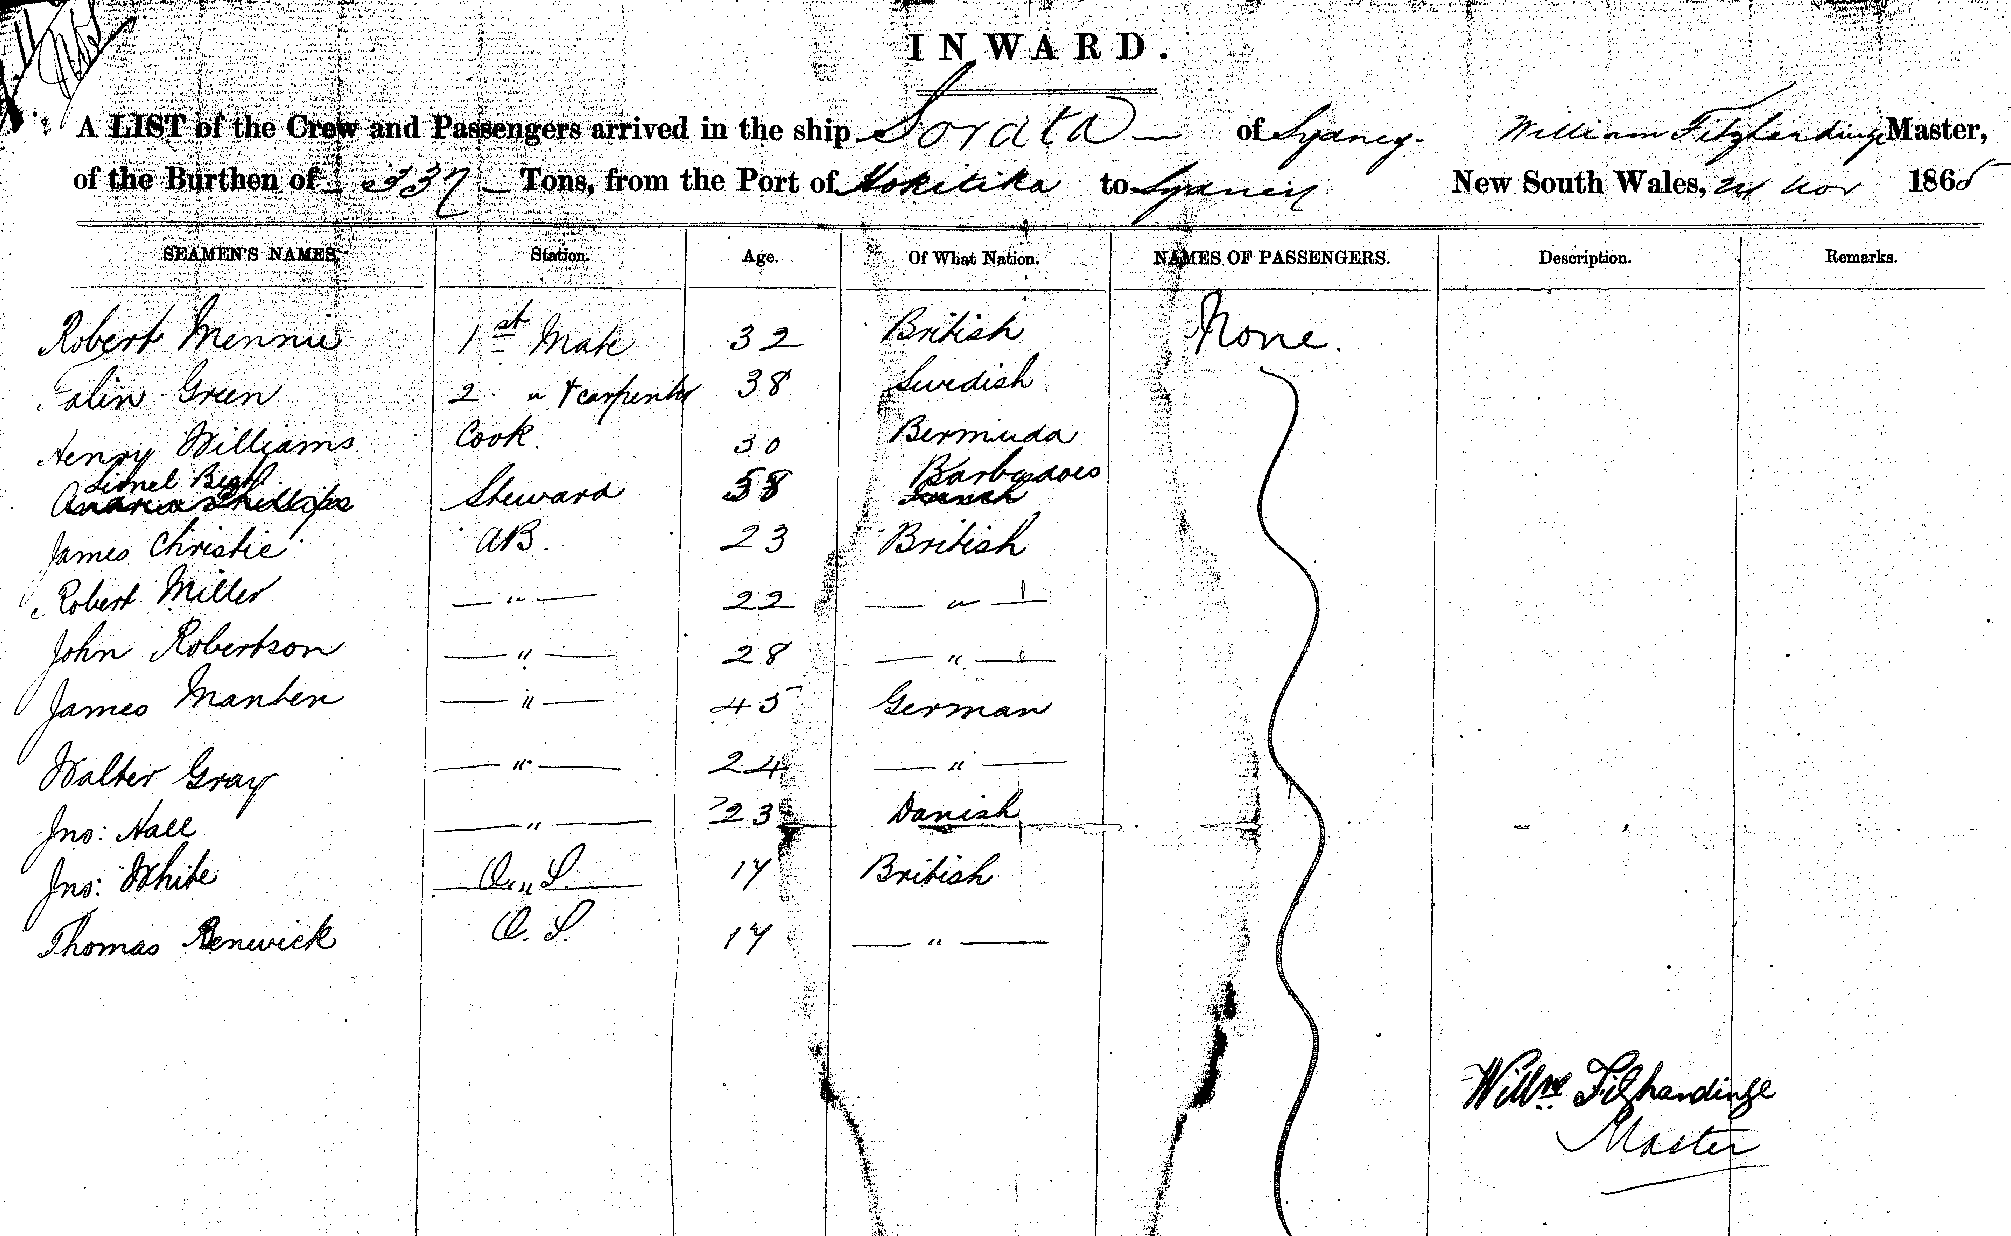 INWARD.
A LIST of the Crew and Passengers arrived in the ship Sorata of Sydney. William Fitzhardinge Master,
of the Burthen of 337 Tons, from the Port of Hokitika to Sydney New South Wales, 24 Nov 1865
SEAMEN'S NAMES. Station. Age. Of What Nation. NAMES OF PASSENGERS. Description. Remarks.
Robert Mennie 1st Mate 32 British None.
Green 2 " + carpenter 38 Swedish
Henry Williams Cook. 30 Bermuda
Lionel Barbadoes
Steward 58
James Christie AB. 23 British
Robert Miller — " — 22 — " —
John Robertson — " — 28 — " —
James Manten — " — 45 German
Walter Gray — " — 24 — " —
Jno: Hall — " — 23 Danish
Jno: White O. S. 17 British
Thomas Renwick O. S. 17 — " —
Willm Fitzhardinge
Master